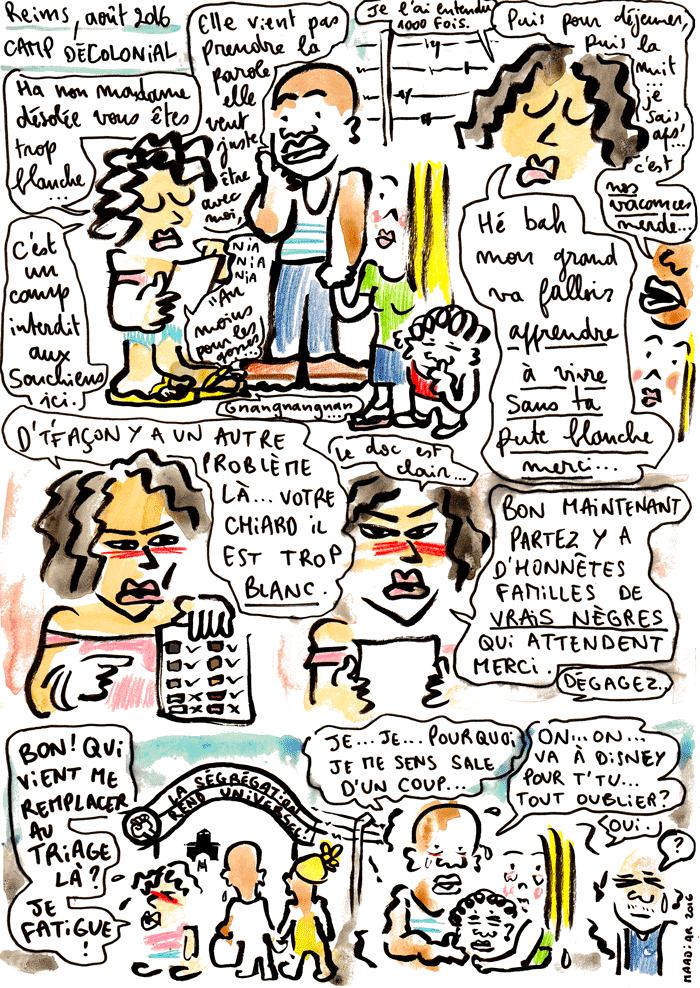 Reims, août 2016
CAMP DÉCOLONIAL
Ha non madame
désolée vous êtes
trop
blanche
...
C'est
un
camp
interdit
aux
Souchiens
ici.
Elle vient pas
prendre la
parole
elle
veut
juste
être
avec
moi.
NIA
NIA
NIA
"Au
moins
pour les
gosses
Gnangnangnan
Je l'ai entendu
1000 FOIS.
Puis pour déjeuner,
puis la
nuit
...
je
sais
afs!
c'est
nos
vacances
merde...
Hé bah
mon grand
va falloir
apprendre
à vivre
sans ta
pute blanche
merci...
D'T'FAÇON Y A UN AUTRE
PROBLÈME
LÀ... VOTRE
CHIARD IL
EST TROP
BLANC.
Le doc est
clair...
BON MAINTENANT
PARTEZ Y A
D'HONNÊTES
FAMILLES DE
VRAIS NÈGRES
QUI ATTENDENT
MERCI.
DÉGAGEZ..
BON! QUI
VIENT ME
REMPLACER
AU
TRIAGE
LÀ?
JE
FATIGUE
!
LA SÉGRÉGATION
REND UNIVERSEL!
JE... JE... POURQUOI
JE ME SENS SALE
D'UN COUP...
ON... ON...
VA À DISNEY
POUR T'TU...
TOUT OUBLIER?
OUI..
?
MAADIAR 2016